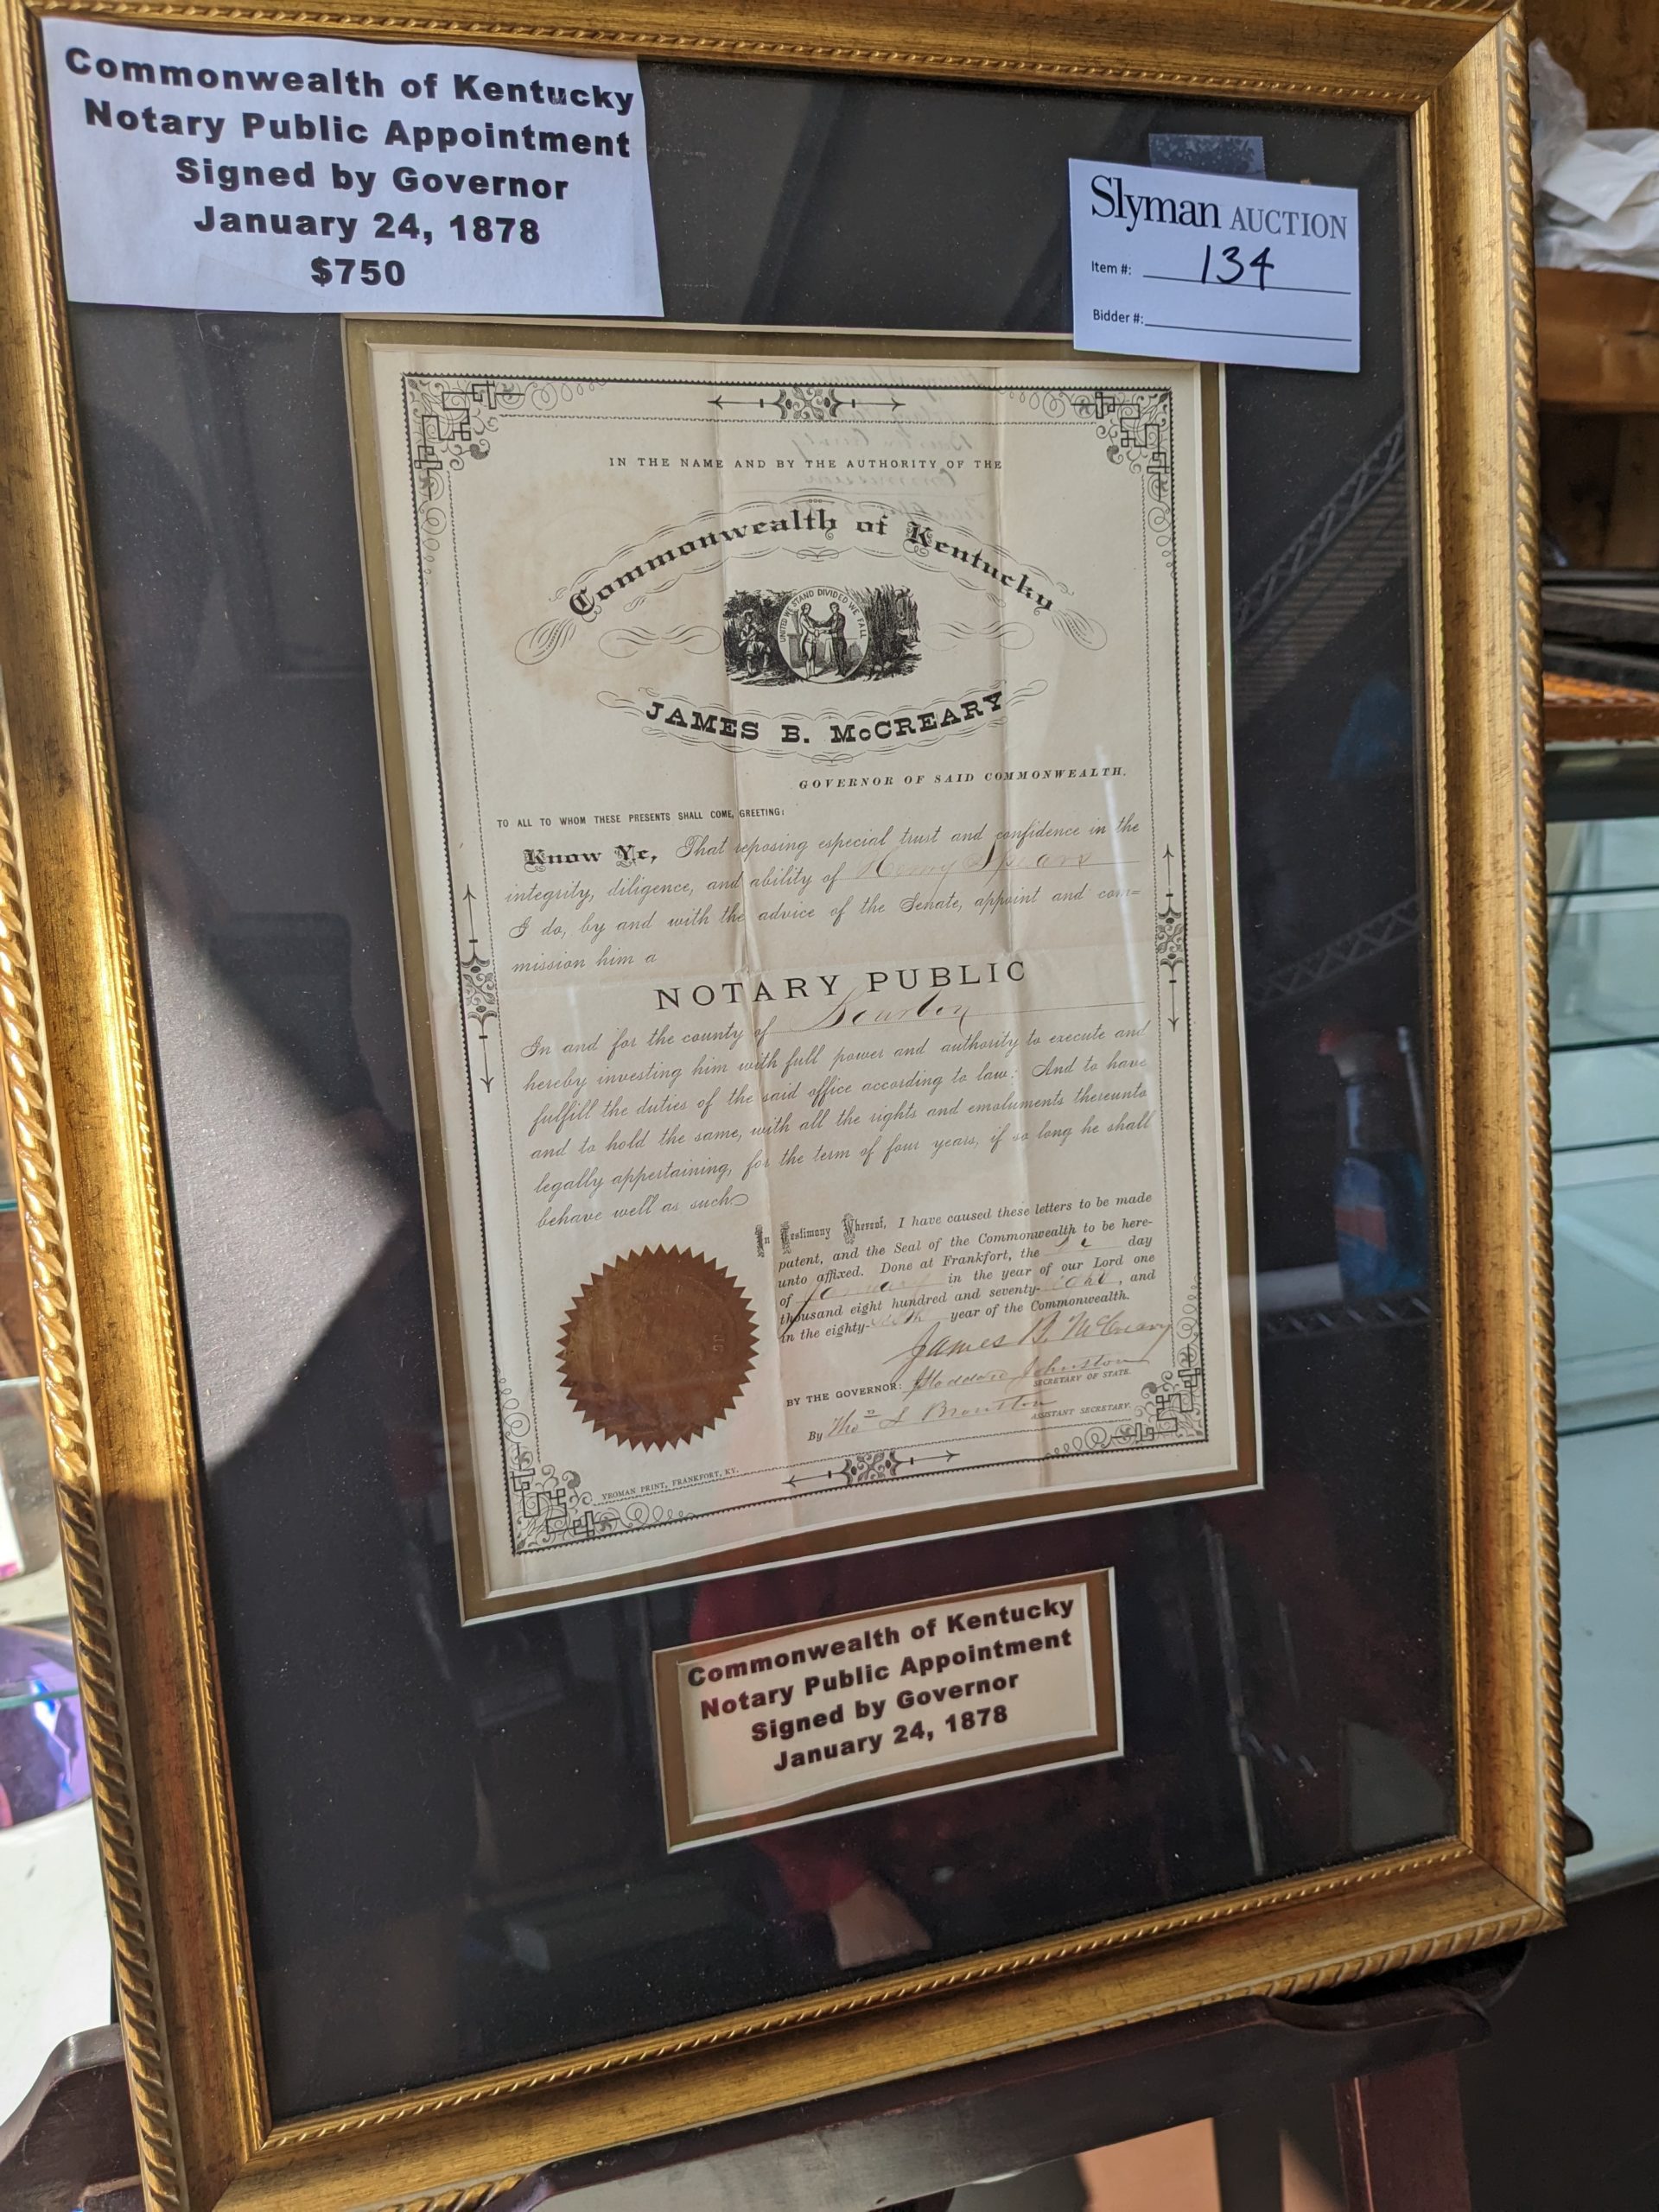 Commonwealth of Kentucky
Notary Public Appointment
Signed by Governor
January 24, 1878
$750
Slyman AUCTION
Item #: 134
Bidder #:
IN THE NAME AND BY THE AUTHORITY OF THE
Commonwealth of Kentucky
UNITED WE STAND DIVIDED WE FALL
JAMES B. McCREARY
GOVERNOR OF SAID COMMONWEALTH.
TO ALL TO WHOM THESE PRESENTS SHALL COME, GREETING:
Know Ye, That reposing especial trust and confidence in the
integrity, diligence, and ability of Henry Spears
I do, by and with the advice of the Senate, appoint and com=
mission him a
NOTARY PUBLIC
In and for the county of Bourbon
hereby investing him with full power and authority to execute and
fulfill the duties of the said office according to law: And to have
and to hold the same, with all the rights and emoluments thereunto
legally appertaining, for the term of four years, if so long he shall
behave well as such
In Testimony Whereof, I have caused these letters to be made
patent, and the Seal of the Commonwealth to be here-
unto affixed. Done at Frankfort, the day
of January in the year of our Lord one
thousand eight hundred and seventy-eight, and
in the eighty- year of the Commonwealth.
James B. McCreary
BY THE GOVERNOR: J Stoddard Johnston
SECRETARY OF STATE.
By Thos
ASSISTANT SECRETARY.
YEOMAN PRINT, FRANKFORT, KY.
Commonwealth of Kentucky
Notary Public Appointment
Signed by Governor
January 24, 1878